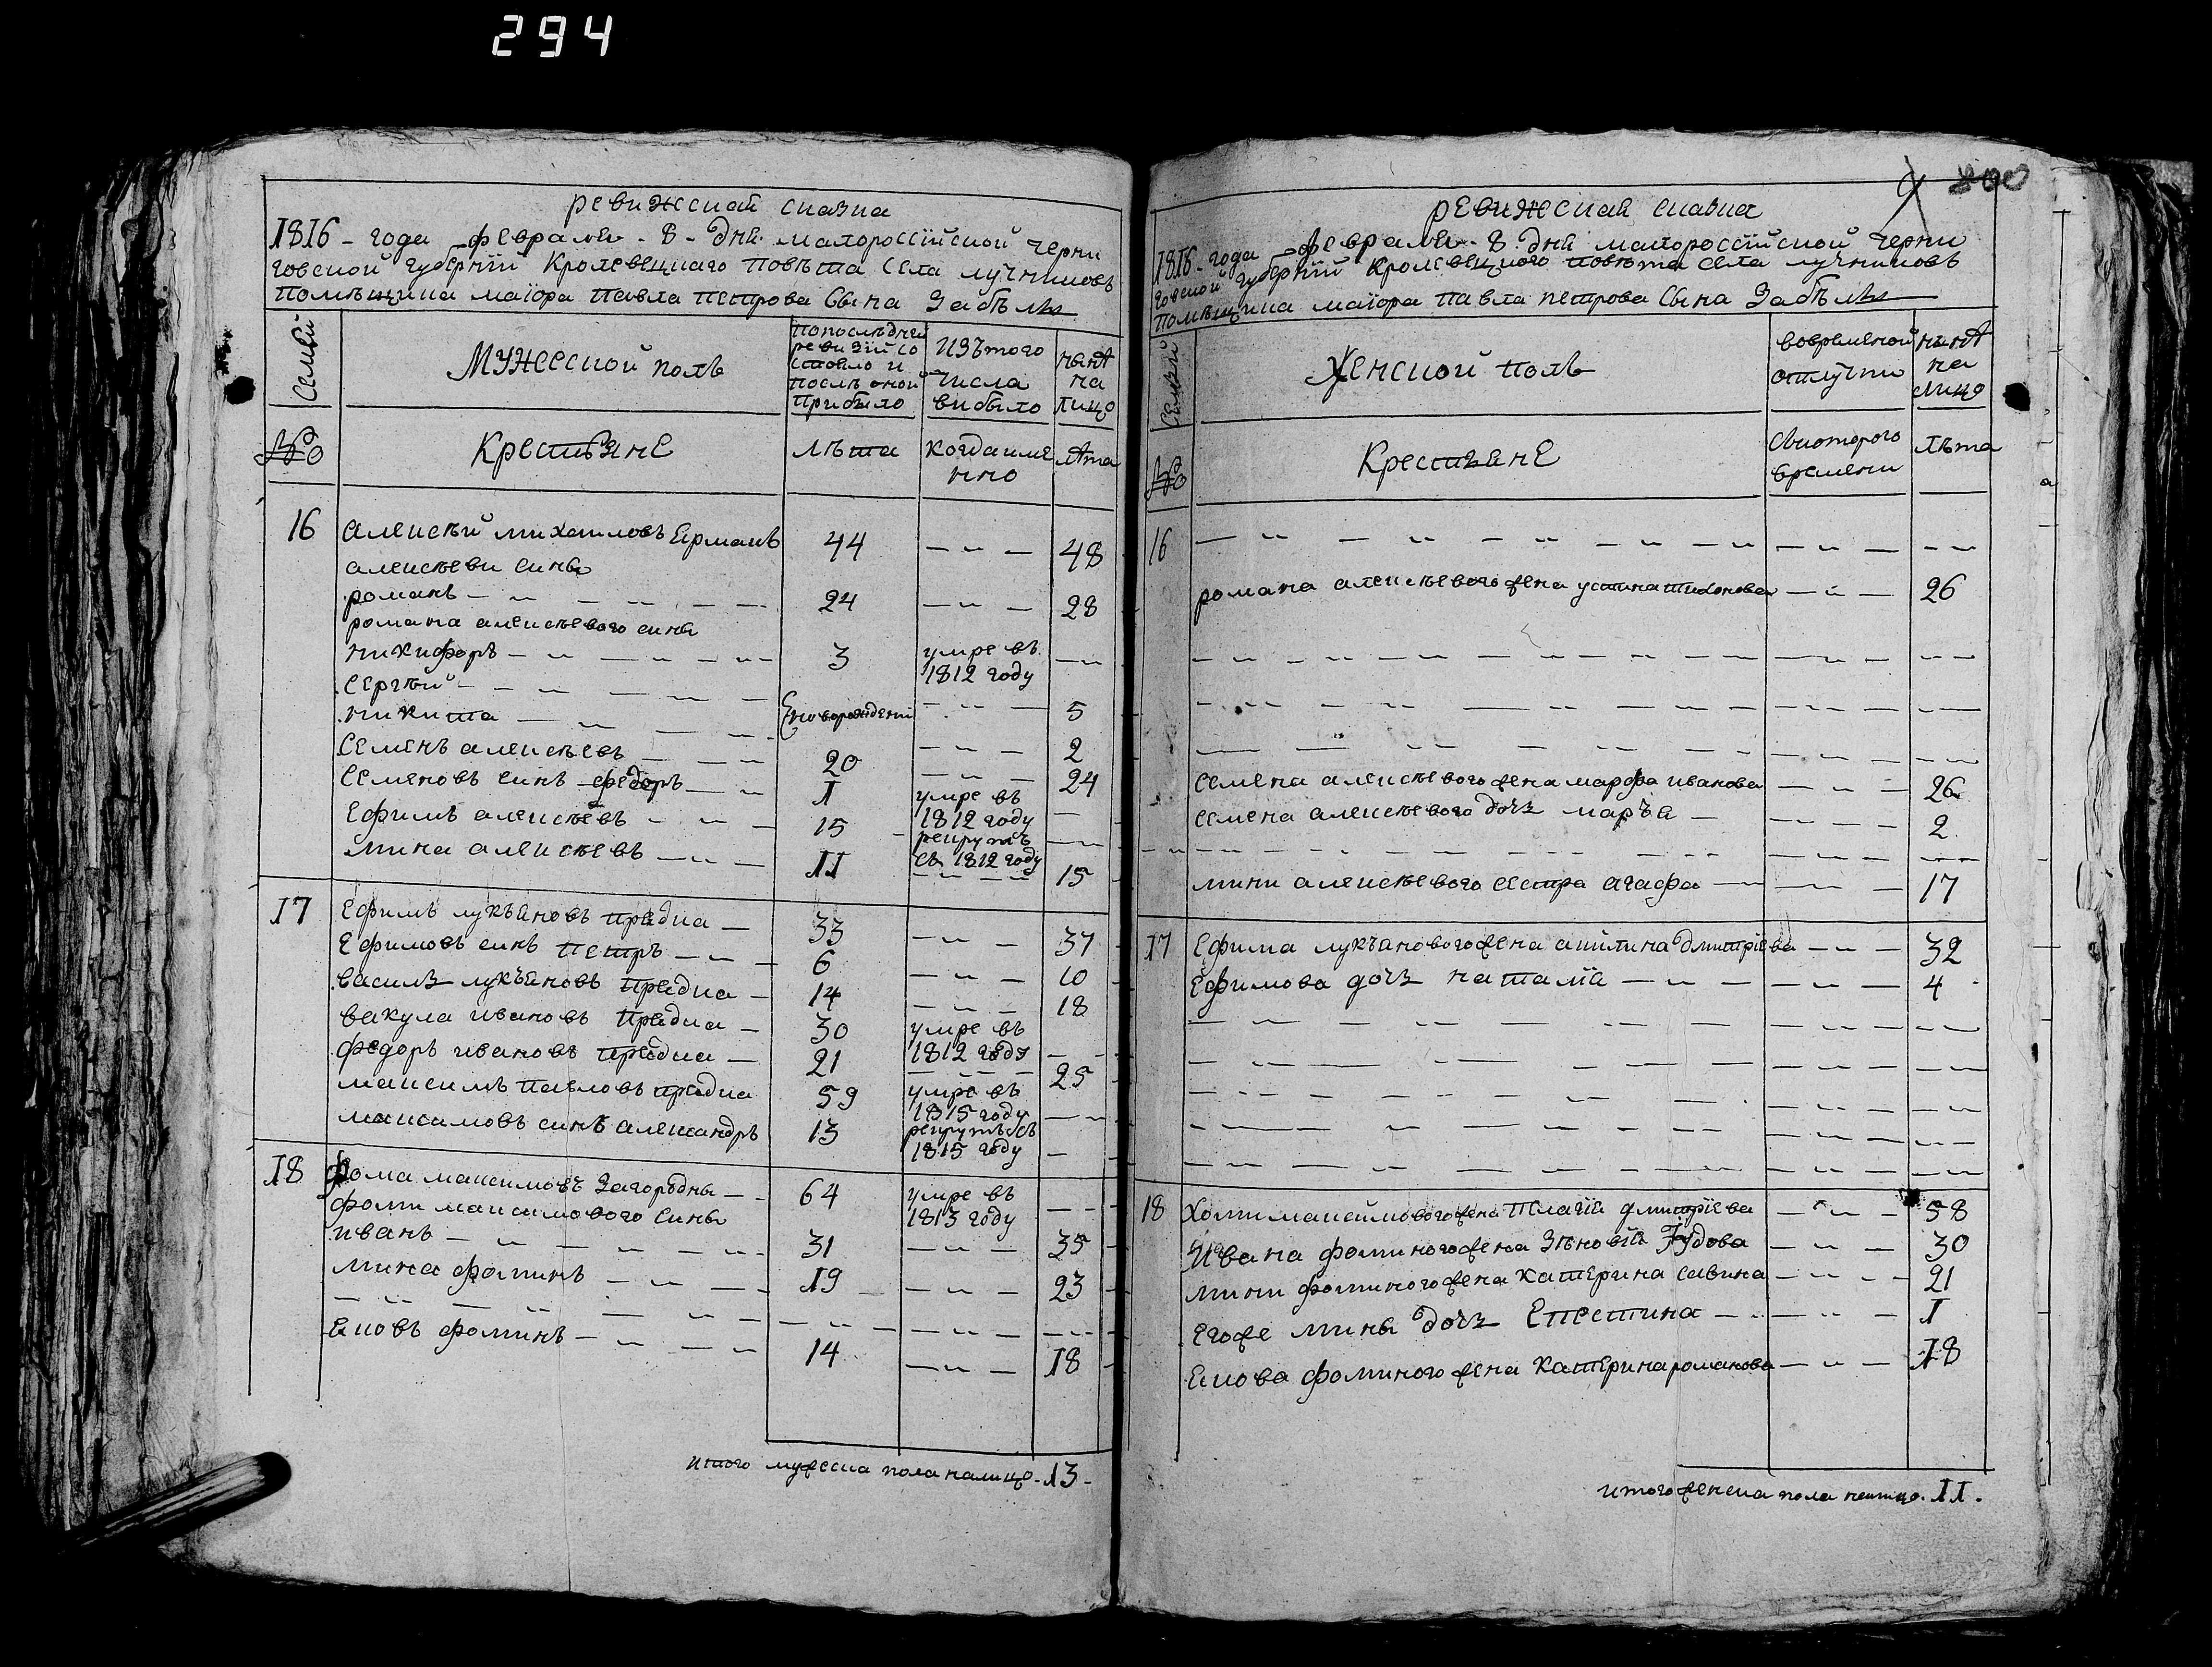 294
ревижеская сказка
1816 - года февраля - 8 - дня малороссїйской черни
говской губернїи Кролевецкаго повѣта села лучниковъ
помѣщика маїора павла петрова Сына Забѣлы
Семьи
Мужеской полъ
попослѣдней
ревизїи со
стояло и
послѣ оной
прибыло
Изътого
числа
выбыло
нынѣ
на
лицо
№
Крестьяне
лѣта
когдаиме
нно
лѣта
16 алексѣй михаиловъ Ермакъ 44 — „ — 48
алексѣеви сины
романъ — „ — 24 — „ — 28
романа алексѣевого сины
никифоръ — „ — 3 умре въ
1812 году — „
Сергѣй — „ — новорожденїи — „ — 5
никита — „ — — „ — 2
Семенъ алексѣевъ — „ 20 — „ — 24
Семеновъ синъ федоръ — „ I умре въ
1812 году —
Ефимъ алексѣевъ — „ — 15 рекрутъ
съ 1812 году — „
мина алексѣевъ — „ — II — „ — 15
17 Ефимъ лукъяновъ прядка — 33 — „ — 37
Ефимовъ синъ петръ — „ — 6 — „ — 10
василь лукъяновъ прядка — 14 — „ — 18
вакула ивановъ прядка — 30 умре въ
1812 году — „
федоръ ивановъ прядка — 21 — „ — 25
максимъ павловъ прядка 59 умре въ
1815 году — „
максимовъ синъ александръ 13 рекрутъ съ
1815 году —
18 фома максимовъ Загородны — 64 умре въ
1813 году — „
фоми максимового сины
иванъ — „ — 31 — „ — 35
мина фоминъ — „ — 19 — „ — 23
— „ — „ — „ —
Яковъ фоминъ — „ — 14 — „ — 18
итого мужеска пола налицо - 13 -
200
ревижеская сказка
1816 - года февраля - 8 дня малороссїйской черни
говской губернїи Кролевецкого повѣта села лучниковъ
помѣщика маїора павла петрова Сына Забѣлы
Семьи
Женской полъ
вовременой
отлучки
нынѣ
на
лицо
№
Крестьяне
Скоторого
времени
лѣта
16 — „ — „ — „ —
романа алексѣевого жена устина тихонова — „ — 26
— „ — „ — „ —
— „ — „ — „ —
— „ — „ — „ —
Семена алексѣевого жена марфа иванова — „ — 26
Семена алексѣевого дочь маръя — — „ — 2
— „ — „ — „ —
мини алексѣевого сестра агафа — „ — 17
17 Ефима лукъянового жена акилина дмитрїева — „ — 32
Ефимова дочь наталїя — „ — „ — 4
— „ — „ — „ —
— „ — „ — „ —
— „ — „ — „ —
— „ — „ — „ —
— „ — „ — „ —
18 Хоми максимового жена пелагїя дмитрїева — „ — 58
Ивана фоминого жена Зѣновїя Іудова — „ — 30
мини фоминого жена катерина савина — „ — 21
Егоже мины дочь Епестина — „ — „ — I
Якова фоминого жена катерина романова — „ — 18
итого женска пола налицо - II.